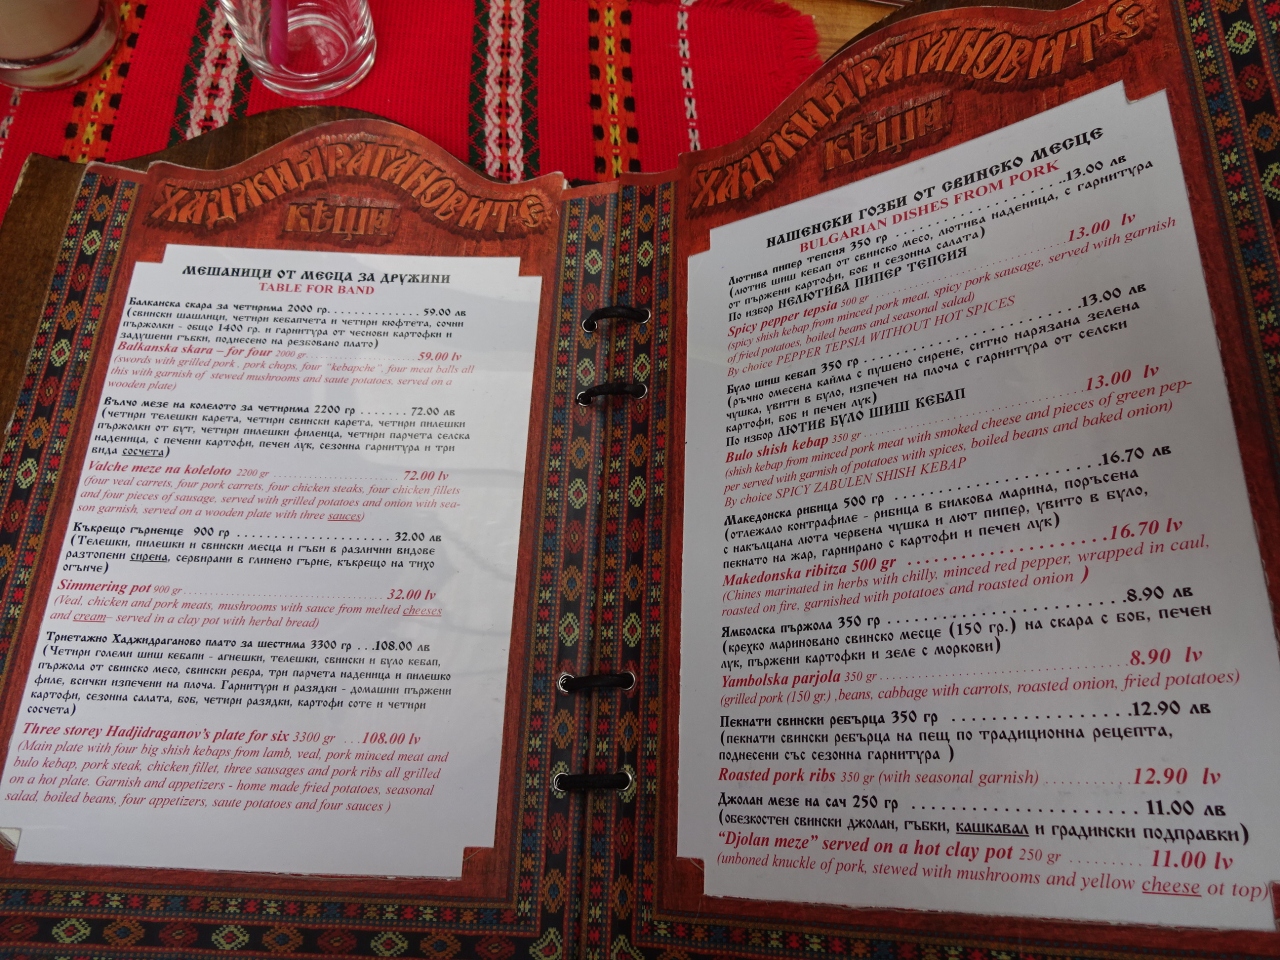 ХАДЖИДРАГАНОВИТѢ
КѢЩИ
МЕШАНИЦИ ОТ МЕСЦА ЗА ДРУЖИНИ
TABLE FOR BAND
Балканска скара за четирима 2000 гр. . . . . . . . . . . . . . 59.00 лв
(свински шашлици, четири кебапчета и четири кюфтета, сочни
пържолки - общо 1400 гр. и гарнитура от чеснови картофки и
задушени гъбки, поднесено на резковано плато)
Balkanska skara – for four 2000 gr ........................ 59.00 lv
(swords with grilled pork , pork chops, four "kebapche", four meat balls all
this with garnish of stewed mushrooms and saute potatoes, served on a
wooden plate)
Вълчо мезе на колелото за четирима 2200 гр . . . . . . . 72.00 лв
(четири телешки карета, четири свински карета, четири пилешки
пържолки от бут, четири пилешки филенца, четири парчета селска
наденица, с печени картофи, печен лук, сезонна гарнитура и три
вида сосчета)
Valche meze na koleloto 2200 gr ........................ 72.00 lv
(four veal carrets, four pork carrets, four chicken steaks, four chicken fillets
and four pieces of sausage, served with grilled potatoes and onion with sea-
son garnish, served on a wooden plate with three sauces)
Къкрещо гърненце 900 гр . . . . . . . . . . . . . . . . . . . . 32.00 лв
(Телешки, пилешки и свински месца и гъби в различни видове
разтопени сирена, сервирани в глинено гърне, къкрещо на тихо
огънче)
Simmering pot 900 gr ........................................ 32.00 lv
(Veal, chicken and pork meats, mushrooms with sauce from melted cheeses
and cream– served in a clay pot with herbal bread)
Триетажно Хаджидраганово плато за шестима 3300 гр . . .108.00 лв
(Четири големи шиш кебапи - агнешки, телешки, свински и було кебап,
пържола от свинско месо, свински ребра, три парчета наденица и пилешко
филе, всички изпечени на плоча. Гарнитури и разядки - домашни пържени
картофи, сезонна салата, боб, четири разядки, картофи соте и четири
сосчета)
Three storey Hadjidraganov's plate for six 3300 gr . . . 108.00 lv
(Main plate with four big shish kebaps from lamb, veal, pork minced meat and
bulo kebap, pork steak, chicken fillet, three sausages and pork ribs all grilled
on a hot plate. Garnish and appetizers - home made fried potatoes, seasonal
salad, boiled beans, four appetizers, saute potatoes and four sauces )
ХАДЖИДРАГАНОВИТѢ
КѢЩИ
НАШЕНСКИ ГОЗБИ ОТ СВИНСКО МЕСЦЕ
BULGARIAN DISHES FROM PORK
Лютива пипер тепсия 350 гр . . . . . . . . . . . . . . . . . .13.00 лв
(лютив шиш кебап от свинско месо, лютива наденица, с гарнитура
от пържени картофи, боб и сезонна салата)
По избор НЕЛЮТИВА ПИПЕР ТЕПСИЯ
Spicy pepper tepsia 500 gr ........................................ 13.00 lv
(spicy shish kebap from minced pork meat, spicy pork sausage, served with garnish
of fried potatoes, boiled beans and seasonal salad)
By choice PEPPER TEPSIA WITHOUT HOT SPICES
Було шиш кебап 350 гр . . . . . . . . . . . . . . . . . . . . .13.00 лв
(ръчно омесена кайма с пушено сирене, ситно нарязана зелена
чушка, увити в було, изпечен на плоча с гарнитура от селски
картофи, боб и печен лук)
По избор ЛЮТИВ БУЛО ШИШ КЕБАП
Bulo shish kebap 350 gr ........................................ 13.00 lv
(shish kebap from minced pork meat with smoked cheese and pieces of green pep-
per served with garnish of potatoes with spices, boiled beans and baked onion)
By choice SPICY ZABULEN SHISH KEBAP
Македонска рибица 500 гр . . . . . . . . . . . . . . . . . . .16.70 лв
(отлежало контрафиле - рибица в билкова марина, поръсена
с накълцана люта червена чушка и лют пипер, увито в було,
пекнато на жар, гарнирано с картофи и печен лук)
Makedonska ribitza 500 gr . . . . . . . . . . . . . . . . . . . .16.70 lv
(Chines marinated in herbs with chilly, minced red pepper, wrapped in caul,
roasted on fire, garnished with potatoes and roasted onion )
Ямболска пържола 350 гр . . . . . . . . . . . . . . . . . . . . .8.90 лв
(крехко мариновано свинско месце (150 гр.) на скара с боб, печен
лук, пържени картофки и зеле с моркови)
Yambolska parjola 350 gr ........................................ 8.90 lv
(grilled pork (150 gr.) ,beans, cabbage with carrots, roasted onion, fried potatoes)
Пекнати свински ребърца 350 гр . . . . . . . . . . . . . . .12.90 лв
(пекнати свински ребърца на пещ по традиционна рецепта,
поднесени със сезонна гарнитура )
Roasted pork ribs 350 gr (with seasonal garnish) ............... 12.90 lv
Джолан мезе на сач 250 гр . . . . . . . . . . . . . . . . . . . 11.00 лв
(обезкостен свински джолан, гъбки, кашкавал и градински подправки)
"Djolan meze" served on a hot clay pot 250 gr ............ 11.00 lv
(unboned knuckle of pork, stewed with mushrooms and yellow cheese ot top)